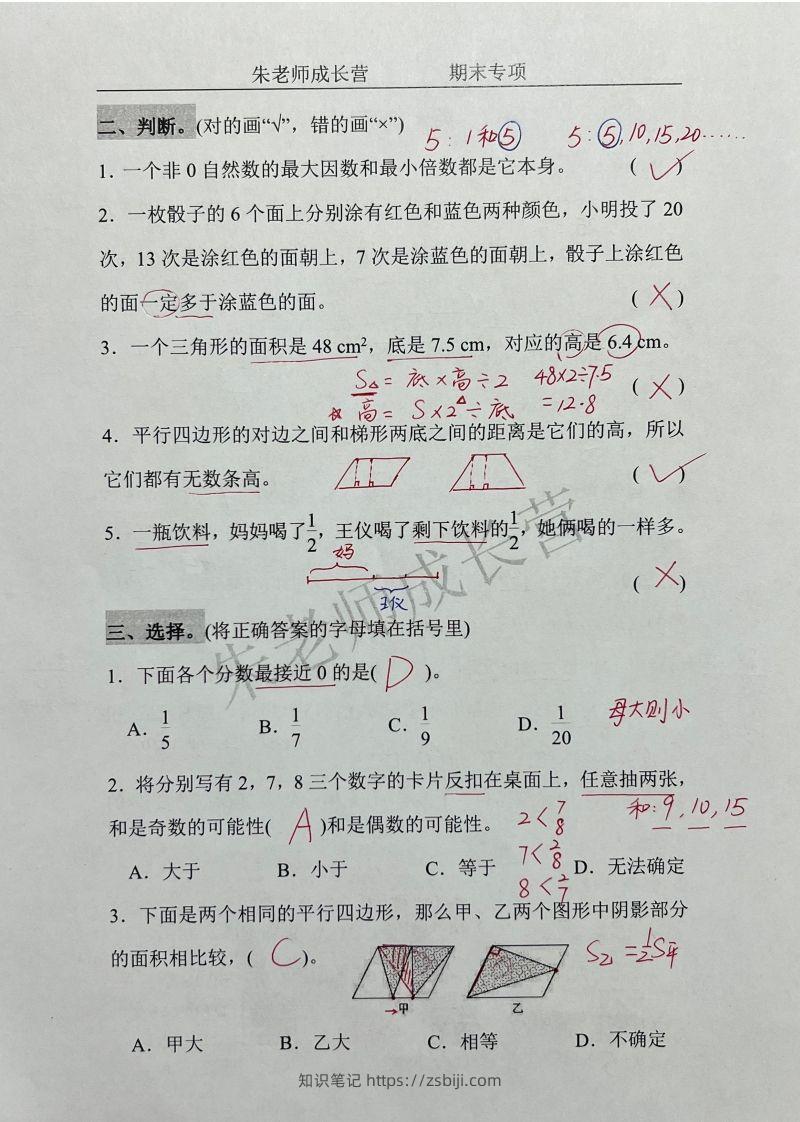 朱老师成长营 期末专项
二、判断。(对的画“√”，错的画“×”)
5：1和5 5：5,10,15,20……
1．一个非 0 自然数的最大因数和最小倍数都是它本身。 ( √ )
2．一枚骰子的 6 个面上分别涂有红色和蓝色两种颜色，小明投了 20
次，13 次是涂红色的面朝上，7 次是涂蓝色的面朝上，骰子上涂红色
的面一定多于涂蓝色的面。 ( × )
3．一个三角形的面积是 48 cm²，底是 7.5 cm，对应的高是 6.4 cm。
S△ = 底×高÷2 48×2÷7.5 ( × )
高△ = S×2÷底 =12.8
4．平行四边形的对边之间和梯形两底之间的距离是它们的高，所以
它们都有无数条高。 ( √ )
5．一瓶饮料，妈妈喝了1/2，王仪喝了剩下饮料的1/2，她俩喝的一样多。
妈
王仪
( × )
朱老师成长营
三、选择。(将正确答案的字母填在括号里)
1．下面各个分数最接近 0 的是( D )。
A．1/5 B．1/7 C．1/9 D．1/20 母大则小
2．将分别写有 2，7，8 三个数字的卡片反扣在桌面上，任意抽两张，
和是奇数的可能性( A )和是偶数的可能性。 2<7 8 和:9,10,15
A．大于 B．小于 C．等于 7<2 8 D．无法确定
8<2 7
3．下面是两个相同的平行四边形，那么甲、乙两个图形中阴影部分
的面积相比较，( C )。 S乙=1/2S平
→甲 乙
A．甲大 B．乙大 C．相等 D．不确定
知识笔记 https://zsbiji.com